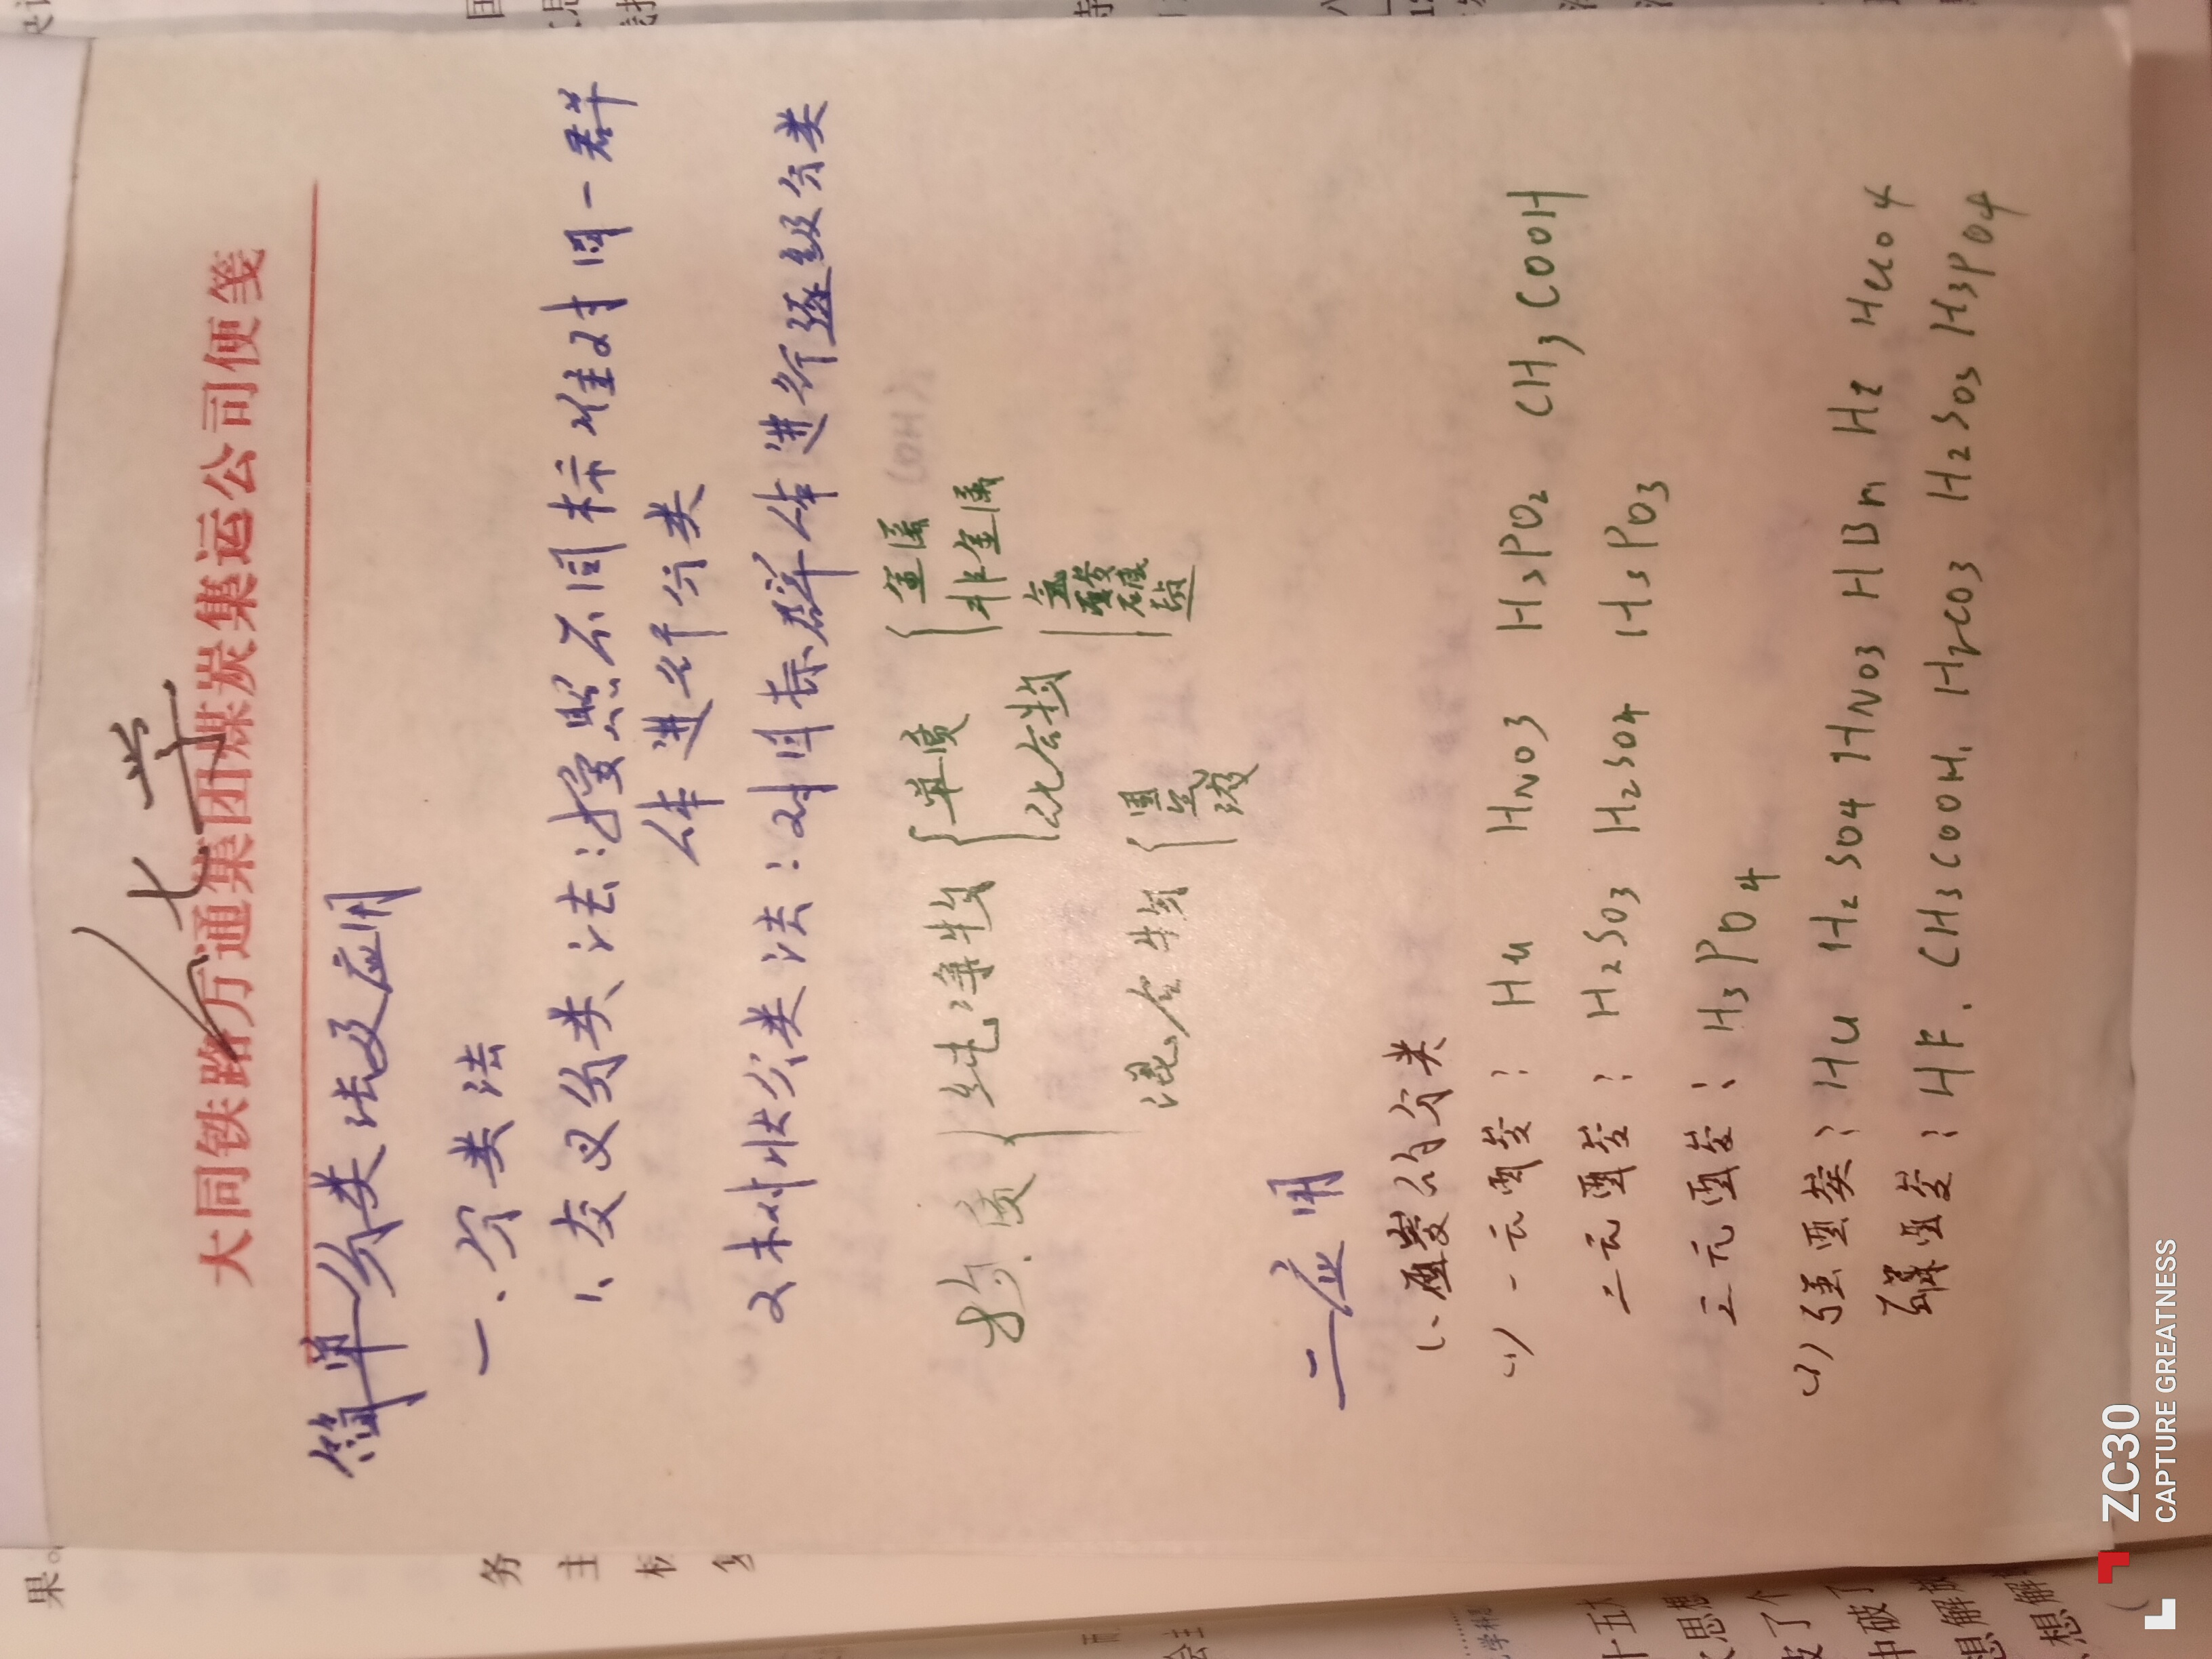 化学
大同铁路万通集团煤炭集运公司便笺
简单分类法及应用
一、分类法
1、交叉分类法:按照不同标准对同一群
体进行分类
2树状分类法:对同一群体进行逐级分类
物质 纯净物 单质 金属
非金属
化合物 氧
酸
碱
盐
混合物 固
气
液
二应用
1、酸的分类
(1) 一元酸: HCl HNO3 H3PO2 CH3COOH
二元酸: H2SO3 H2SO4 H3PO3
三元酸: H3PO4
(2) 强酸: HCl H2SO4 HNO3 HBr HI HClO4
弱酸: HF. CH3COOH. H2CO3 H2SO3 H3PO4
ZC30
CAPTURE GREATNESS
果。
务
主
十五大
思想
皮了个
中破了
想解放
思想解